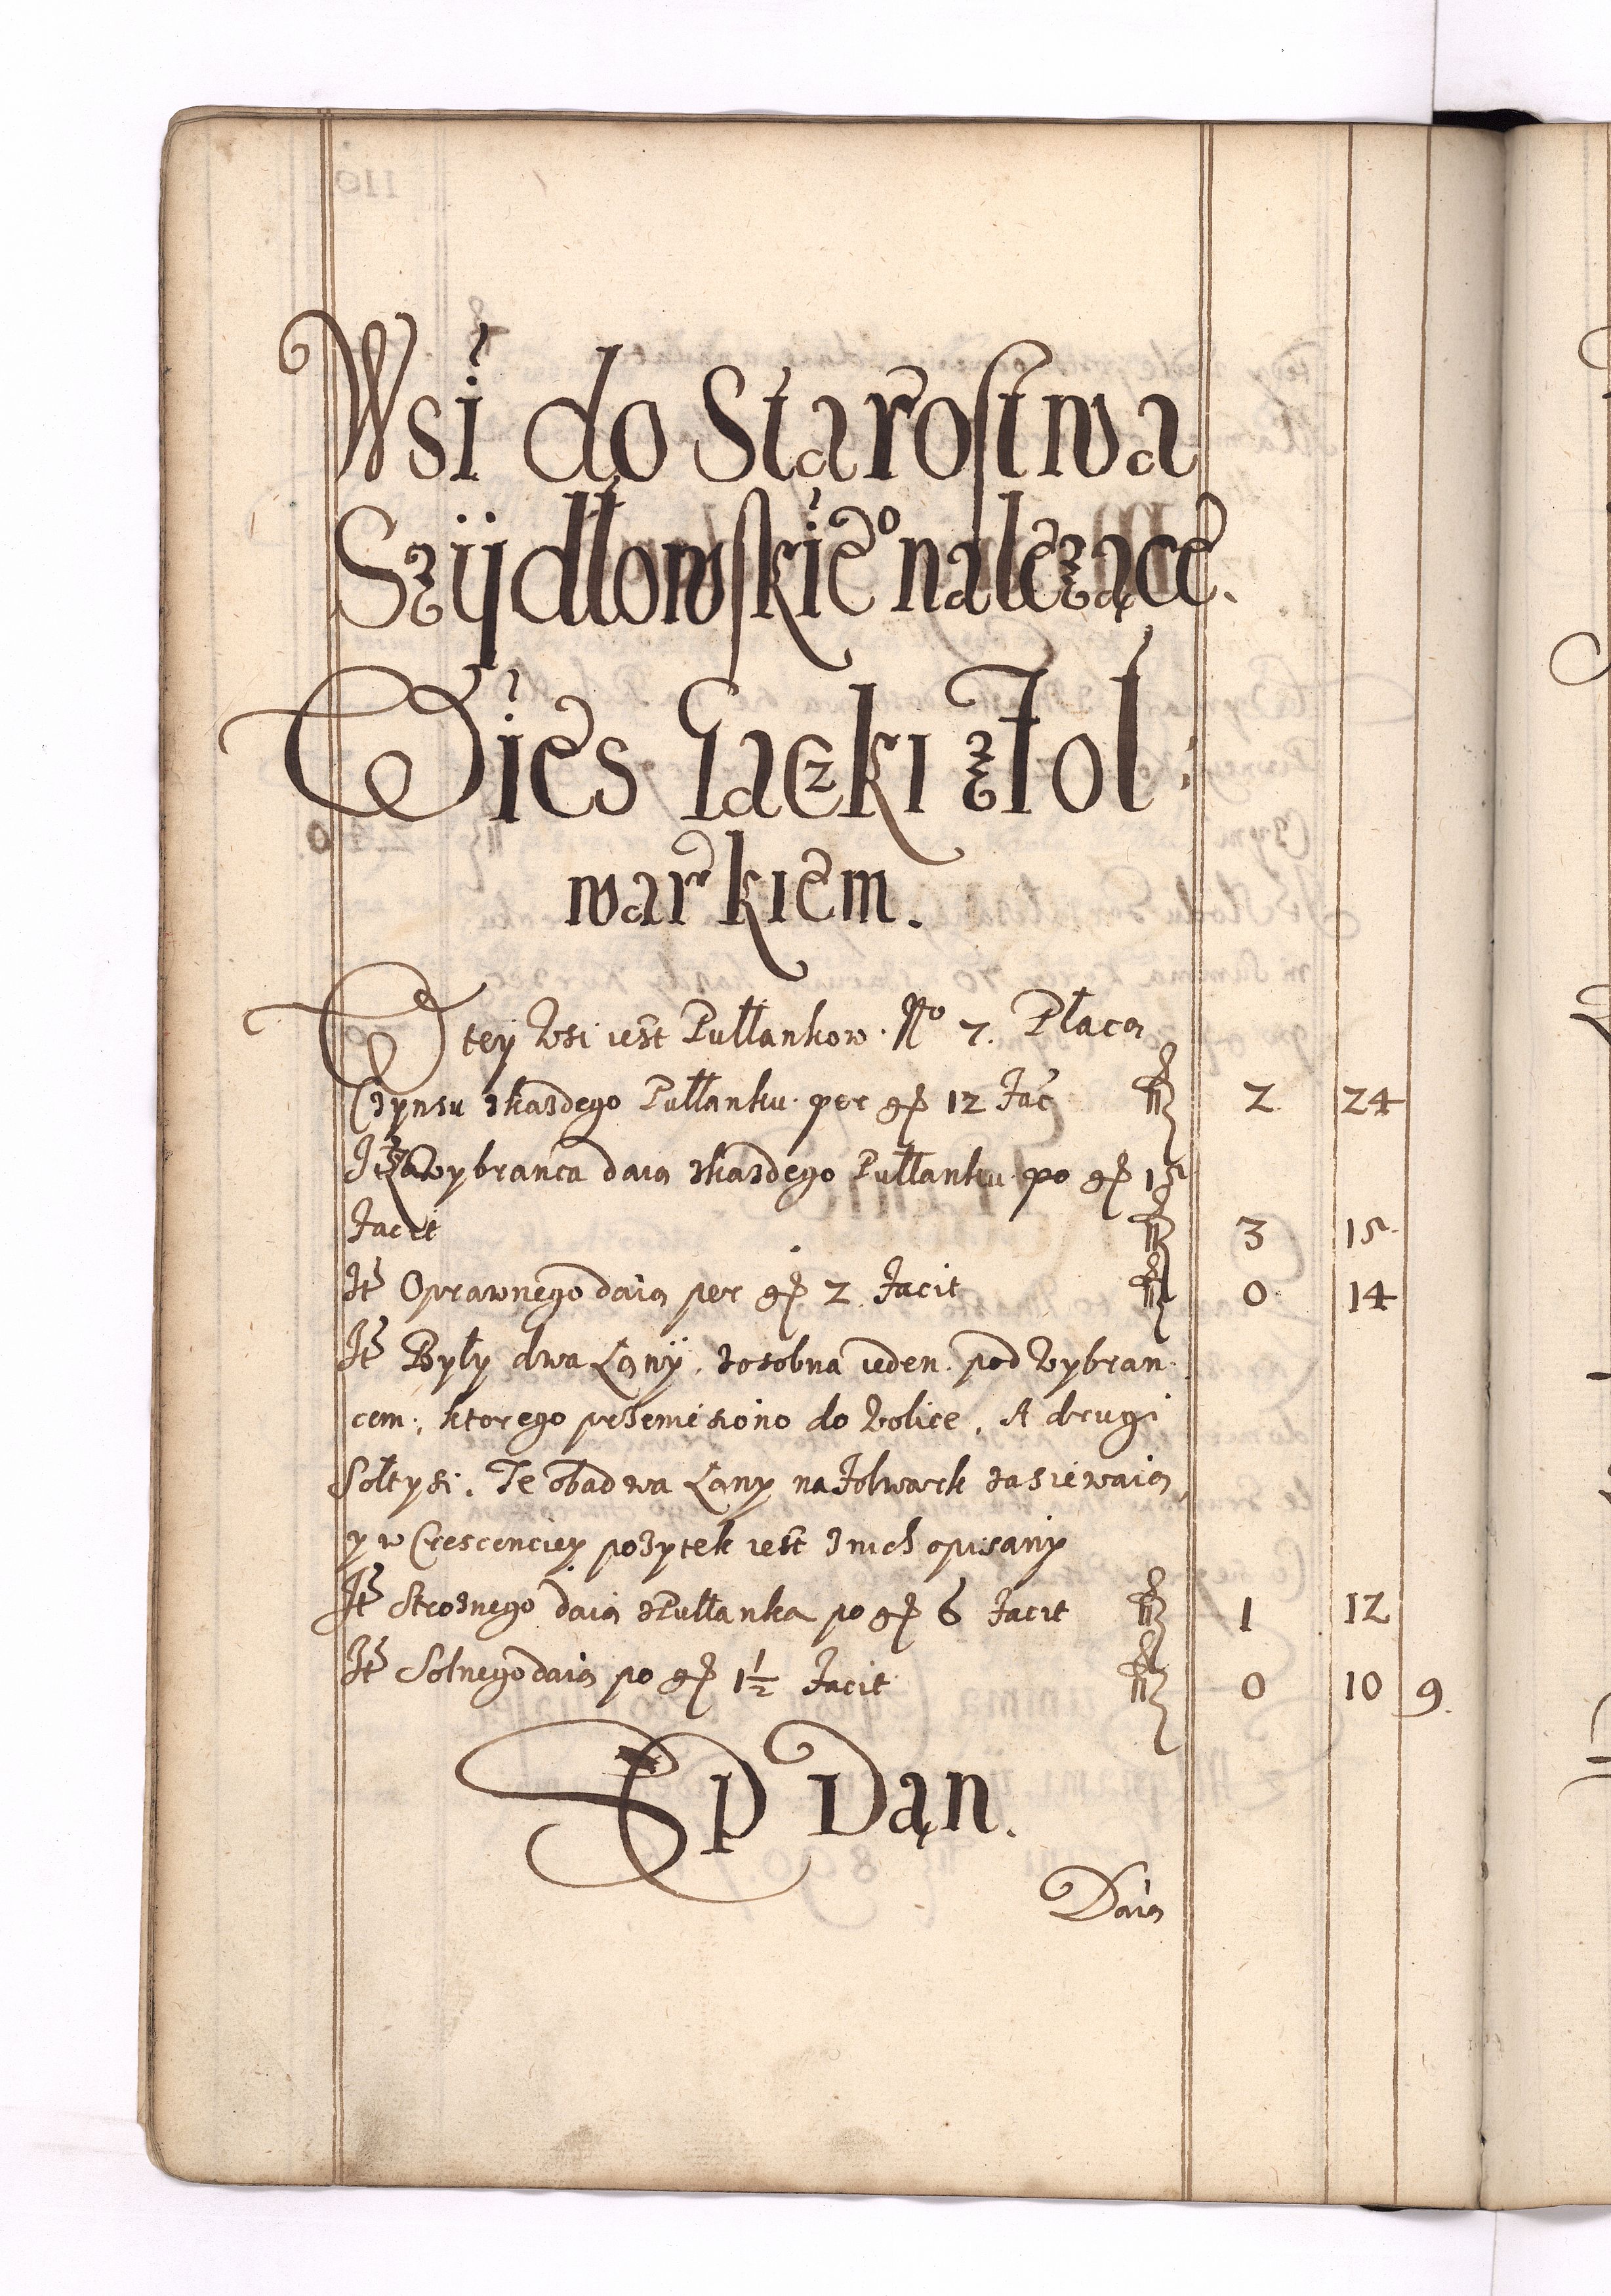 Wsi do Starostwa
Szÿdłowskie⁰ nalezące.
Wies Gaczki z Fol:
warkiem.
W tey Wsi iest Pułłankow. No 7. Płacą
Czynsu zkazdego Pułłanku per gr 12 Fac fl 2 24
It Za Wybranca daią zkazdego Pułłanku po gr 15
Facit fl 3 15
It Oprawnego daią per gr 2 Facit fl 0 14
It Były dwa Łany, zosobna ieden pod Wybran
cem, ktorego przeniesiono do Wolice, A drugi
Sołtysi. Te obadwa Łany na Folwark zasiewaią,
y w Crescenciey pozytek iest z nich opisany
It Stroznego daią z Pułłanka po gr 6 Facit fl 1 12
It Solnego daią po gr 1½ Facit fl 0 10 9.
Sęp Dan.
Daią